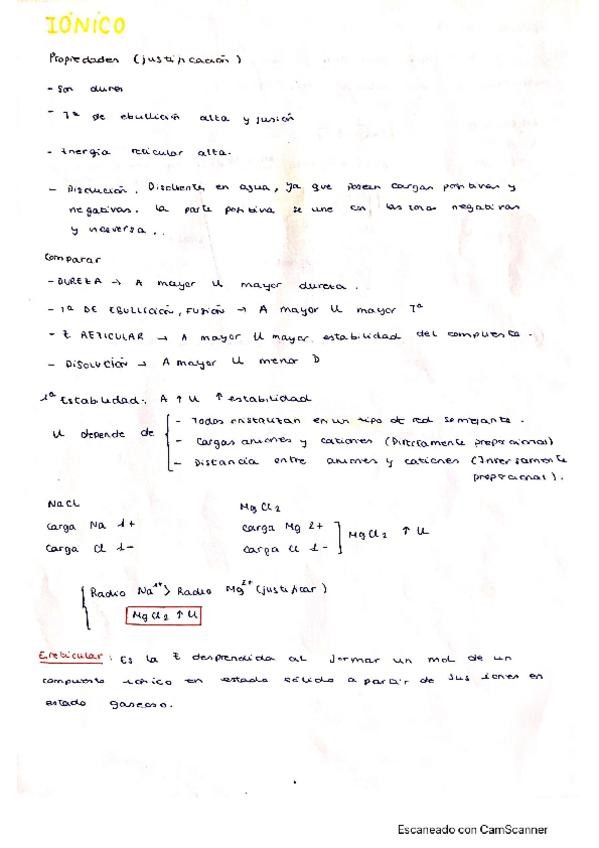 IÓNICO
Propiedades (justificación)
- Son duros
- Tª de ebullición alta y fusión
- Energía reticular alta.
- Disolución. Disolvente en agua, ya que poseen cargas positivas y
negativas. La parte positiva se une con las zonas negativas
y viceversa..
Comparar
- DUREZA → A mayor U mayor dureza.
- Tª DE EBULLICIÓN, FUSIÓN → A mayor U mayor Tª
- E RETICULAR → A mayor U mayor estabilidad del compuesto.
- DISOLUCIÓN → A mayor U menor D
1ª Estabilidad: A ↑ U ↑ estabilidad
U depende de
- Todos cristalizan en un tipo de red semejante.
- Cargas aniones y cationes (Directamente proporcional)
- Distancia entre aniones y cationes (Inversamente
proporcional).
NaCl
MgCl2
Carga Na 1+
carga Mg 2+
Carga Cl 1-
carga Cl 1-
MgCl2 ↑ U
Radio Na1+ > Radio Mg2+ (justificar)
MgCl2 ↑ U
E reticular: Es la E desprendida al formar un mol de un
compuesto iónico en estado sólido a partir de sus iones en
estado gaseoso.
Escaneado con CamScanner